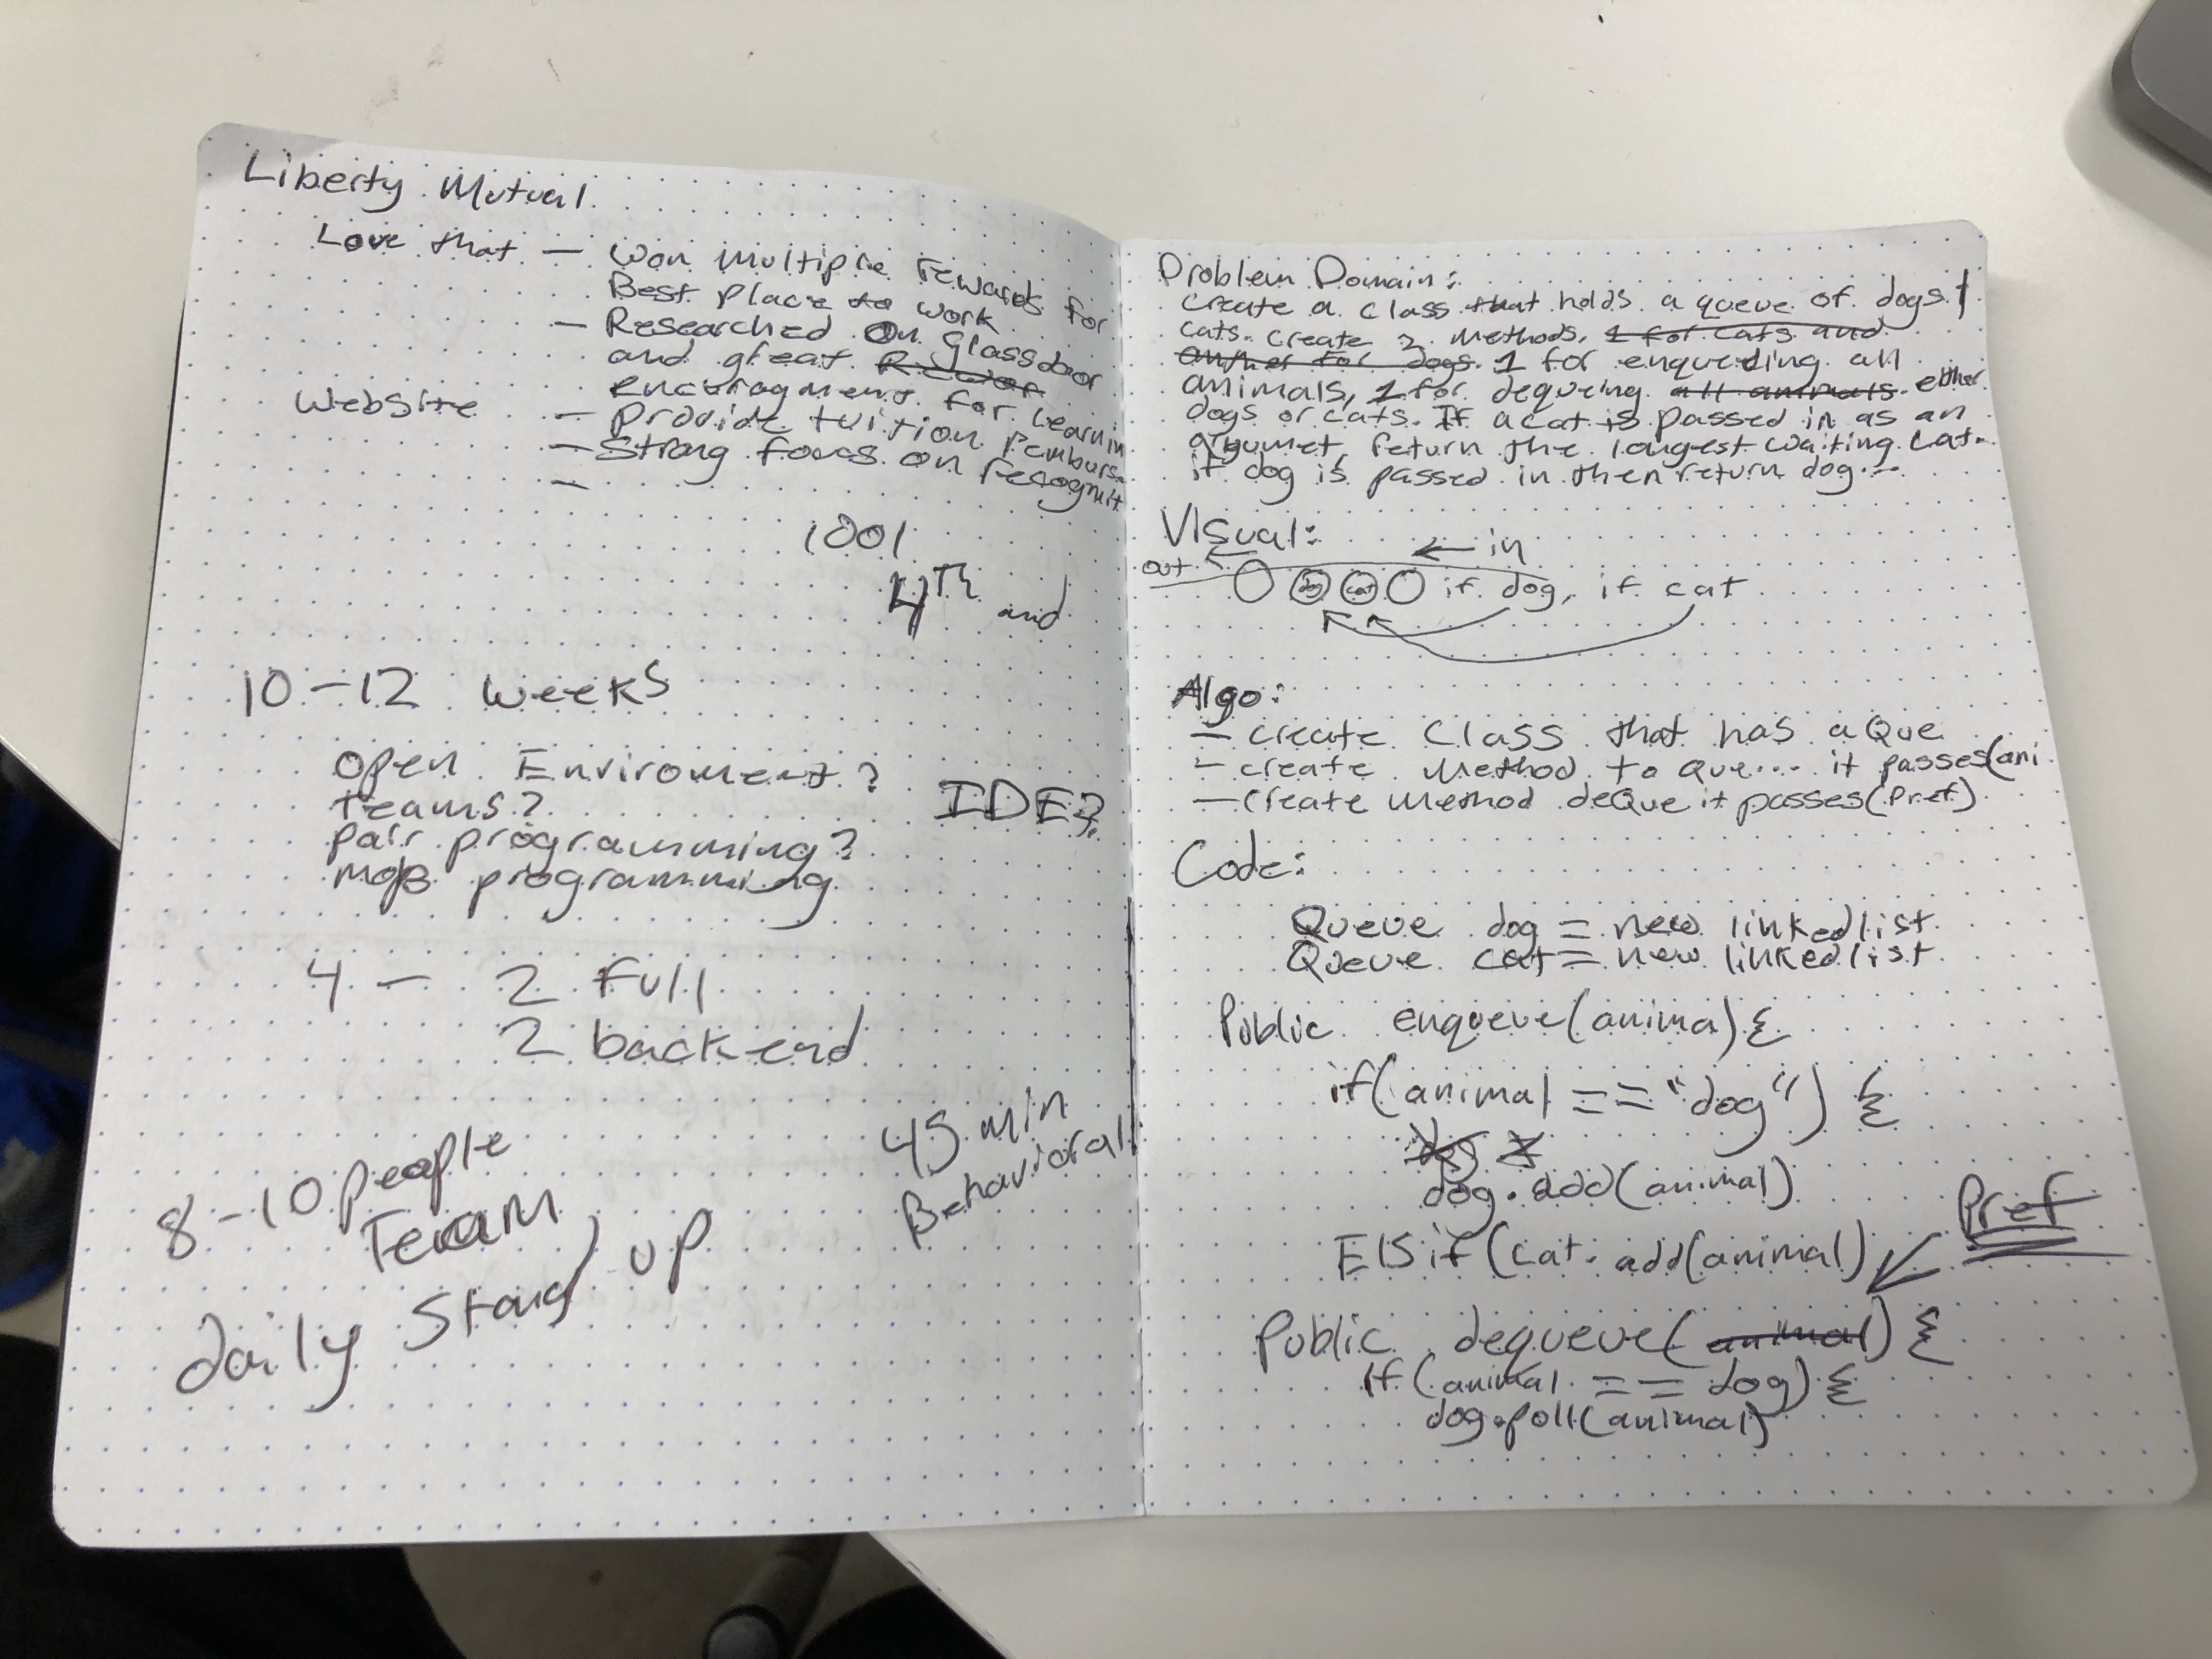 Liberty Mutual
Love that - Won multiple rewards for
Best place to work
- Researched on glassdoor
and great
Website encouragment for learnin
- Providing tuition reimburse
- Strong focus on recognit
-
1001
4th and
10-12 weeks
Open Enviroment?
teams?
pair programming?
mob programming
IDE?
4 - 2 full
2 back-end
8-10 people
Team
45 min
Behavioral
Daily Stand up
Problem Domain:
create a class that holds a queue of dogs/
cats. create 2 methods, 1 for cats and
another for dogs. 1 for enqueuing all
animals, 1 for dequeing all animals either
dogs or cats. If a cat is passed in as an
argumet return the longest waiting cat.
if dog is passed in then return dog...
Visual:
out ← ← in
dog cat if dog, if cat
Algo:
- create class that has a Que
- create method to que... it passes(ani
- create memod deque it passes(pref)
Code:
Queue dog = new linkedlist
Queue cat = new linkedlist
Public enqueue(animal){
if(animal == "dog") {
dog.add(animal)
Elsif(cat.add(animal)
Pref
Public dequeue(animal) {
if(animal == dog) {
dog.poll(animal)